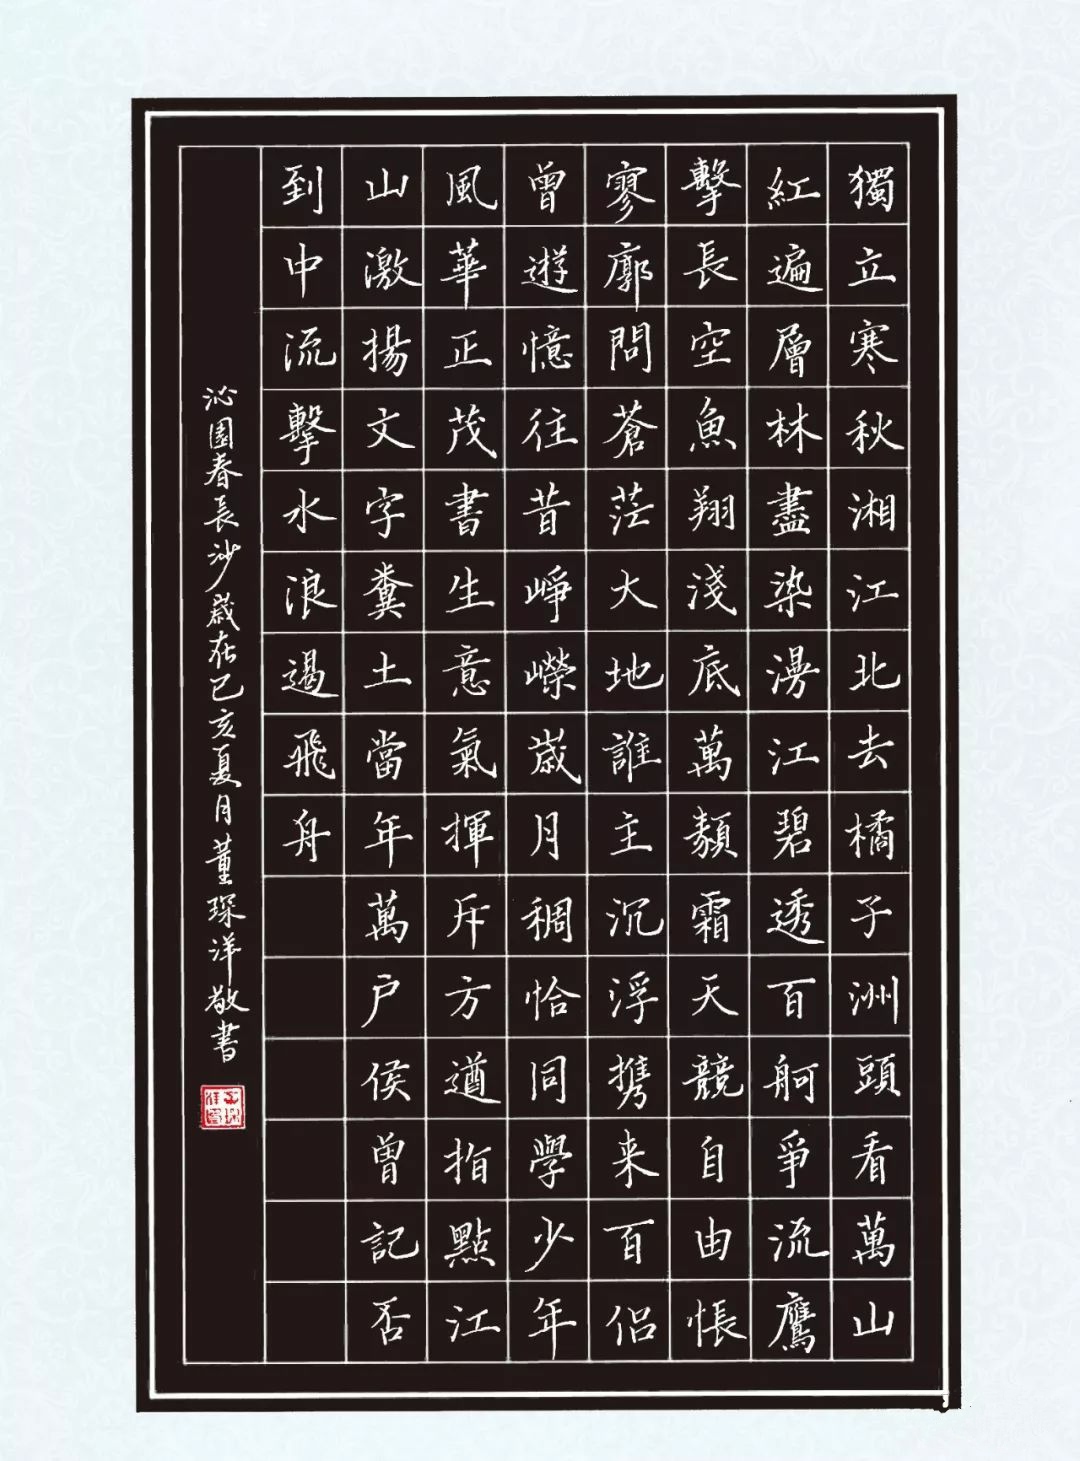 獨立寒秋湘江北去橘子洲頭看萬山
紅遍層林盡染漫江碧透百舸爭流鷹
擊長空魚翔淺底萬類霜天競自由悵
寥廓問蒼茫大地誰主沉浮携来百侣
曾遊憶往昔崢嶸歲月稠恰同學少年
風華正茂書生意氣揮斥方遒指點江
山激揚文字糞土當年萬户侯曾記否
到中流擊水浪遏飛舟
沁園春長沙歲在己亥夏月董琛洋敬書